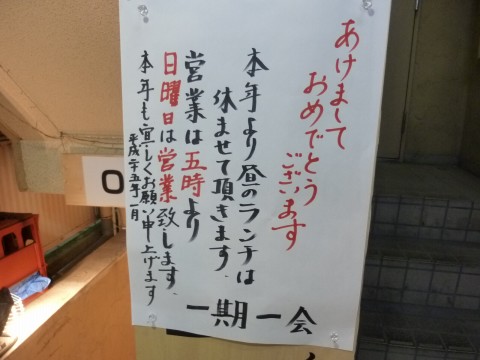 あけまして
おめでとう
ございます
本年より昼のランチは
休ませて頂きます.
営業は五時より
日曜日は営業致します.
本年も宜しくお願い申上げます
平成二十五年一月
一期一会